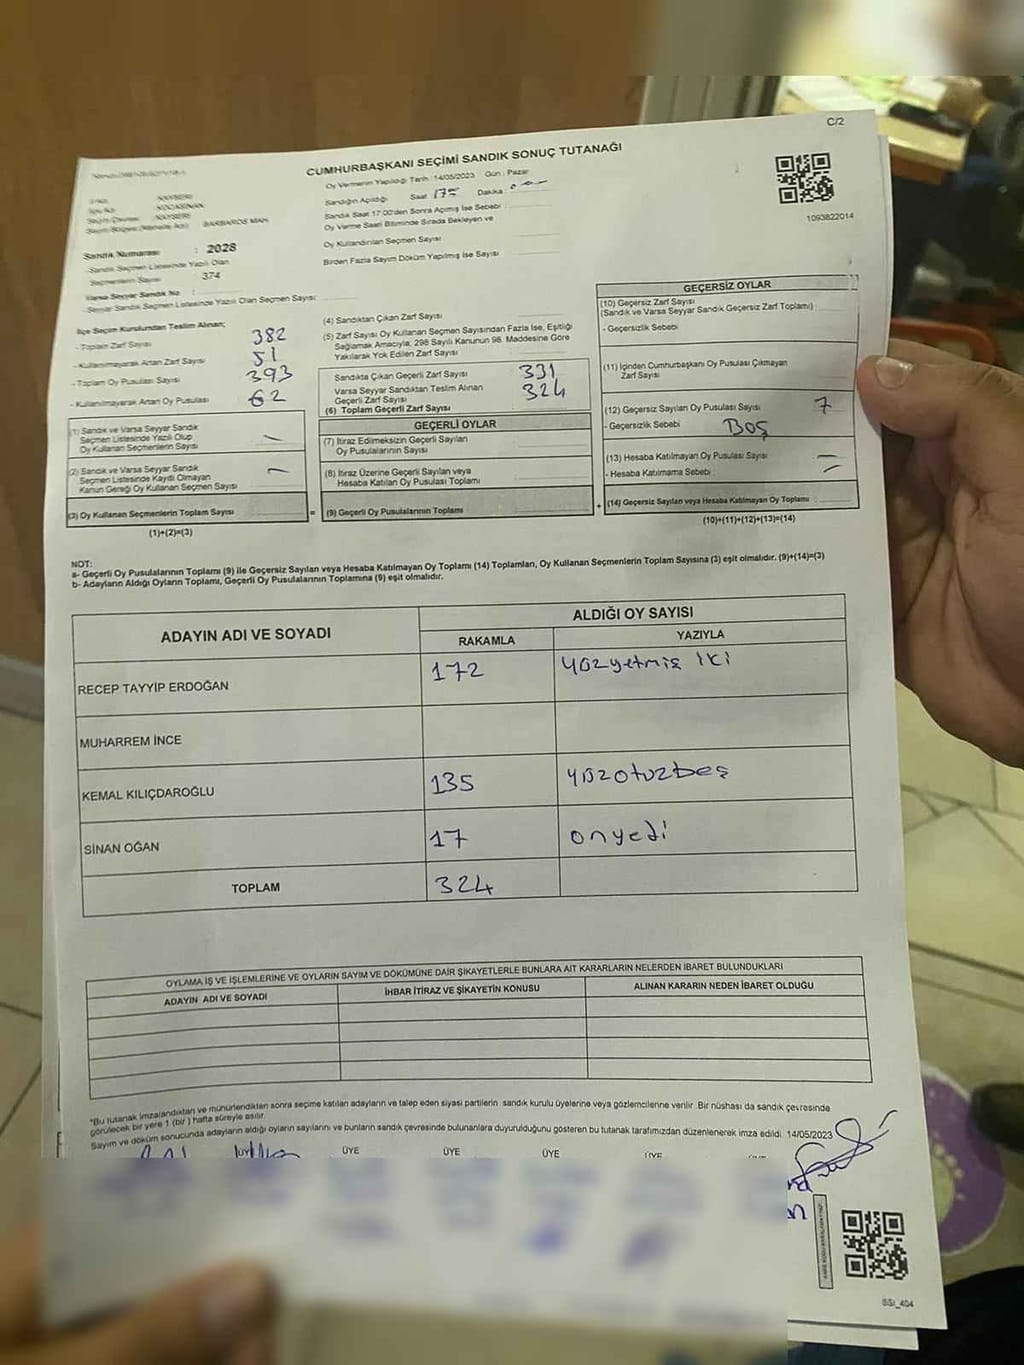 C/2
CUMHURBAŞKANI SEÇİMİ SANDIK SONUÇ TUTANAĞI
Oy Vermenin Yapıldığı Tarih : 14/05/2023 Gün : Pazar
Sandığın Açıldığı Saat Dakika
Sandık Saat 17:00'den Sonra Açılmış İse Sebebi :
Oy Verme Saati Bitiminde Sırada Bekleyen ve
Oy Kullandırılan Seçmen Sayısı
Birden Fazla Sayım Döküm Yapılmış İse Sayısı
1093822014
KAYSERİ
KOCASİNAN
KAYSERİ
BARBAROS MAH.
Sandık Numarası : 2028
Sandık Seçmen Listesinde Yazılı Olan
Seçmenlerin Sayısı 374
Varsa Seyyar Sandık No :
Seyyar Sandık Seçmen Listesinde Yazılı Olan Seçmen Sayısı:
İlçe Seçim Kurulundan Teslim Alınan;
- Toplam Zarf Sayısı 382
- Kullanılmayarak Artan Zarf Sayısı 51
- Toplam Oy Pusulası Sayısı 393
- Kullanılmayarak Artan Oy Pusulası 62
(1) Sandık ve Varsa Seyyar Sandık
Seçmen Listesinde Yazılı Olup
Oy Kullanan Seçmenlerin Sayısı —
(2) Sandık ve Varsa Seyyar Sandık
Seçmen Listesinde Kaydı Olmayan
Kanun Gereği Oy Kullanan Seçmen Sayısı —
(3) Oy Kullanan Seçmenlerin Toplam Sayısı
(1)+(2)=(3)
=
(4) Sandıktan Çıkan Zarf Sayısı
(5) Zarf Sayısı Oy Kullanan Seçmen Sayısından Fazla İse, Eşitliği
Sağlamak Amacıyla; 298 Sayılı Kanunun 98. Maddesine Göre
Yakılarak Yok Edilen Zarf Sayısı
Sandıkta Çıkan Geçerli Zarf Sayısı 331
Varsa Seyyar Sandıktan Teslim Alınan
Geçerli Zarf Sayısı 324
(6) Toplam Geçerli Zarf Sayısı
GEÇERLİ OYLAR
(7) İtiraz Edilmeksizin Geçerli Sayılan
Oy Pusulasının Sayısı
(8) İtiraz Üzerine Geçerli Sayılan veya
Hesaba Katılan Oy Pusulası Toplamı
(9) Geçerli Oy Pusulalarının Toplamı
+
GEÇERSİZ OYLAR
(10) Geçersiz Zarf Sayısı
(Sandık ve Varsa Seyyar Sandık Geçersiz Zarf Toplamı)
- Geçersizlik Sebebi
(11) İçinden Cumhurbaşkanı Oy Pusulası Çıkmayan
Zarf Sayısı
(12) Geçersiz Sayılan Oy Pusulası Sayısı 7
- Geçersizlik Sebebi BOŞ
(13) Hesaba Katılmayan Oy Pusulası Sayısı —
- Hesaba Katılmama Sebebi : —
(14) Geçersiz Sayılan veya Hesaba Katılmayan Oy Toplamı
(10)+(11)+(12)+(13)=(14)
NOT:
a- Geçerli Oy Pusulalarının Toplamı (9) ile Geçersiz Sayılan veya Hesaba Katılmayan Oy Toplamı (14) Toplamları, Oy Kullanan Seçmenlerin Toplam Sayısına (3) eşit olmalıdır. (9)+(14)=(3)
b- Adayların Aldığı Oyların Toplamı, Geçerli Oy Pusulalarının Toplamına (9) eşit olmalıdır.
ADAYIN ADI VE SOYADI
ALDIĞI OY SAYISI
RAKAMLA
YAZIYLA
RECEP TAYYİP ERDOĞAN 172 yüzyetmiş iki
MUHARREM İNCE
KEMAL KILIÇDAROĞLU 135 yüzotuzbeş
SİNAN OĞAN 17 onyedi
TOPLAM 324
OYLAMA İŞ VE İŞLEMLERİNE VE OYLARIN SAYIM VE DÖKÜMÜNE DAİR ŞİKAYETLERLE BUNLARA AİT KARARLARIN NELERDEN İBARET BULUNDUKLARI
ADAYIN ADI VE SOYADI
İHBAR İTİRAZ VE ŞİKAYETİN KONUSU
ALINAN KARARIN NEDEN İBARET OLDUĞU
*Bu tutanak imzalandıktan ve mühürlendikten sonra seçime katılan adayların ve talep eden siyasi partilerin sandık kurulu üyelerine veya gözlemcilerine verilir. Bir nüshası da sandık çevresinde
görülecek bir yere 1 (bir) hafta süreyle asılır.
Sayım ve döküm sonucunda adayların aldığı oyların sayılarını ve bunların sandık çevresinde bulunanlara duyurulduğunu gösteren bu tutanak tarafımızdan düzenlenerek imza edildi. 14/05/2023
ÜYE ÜYE ÜYE ÜYE
SSİ_404